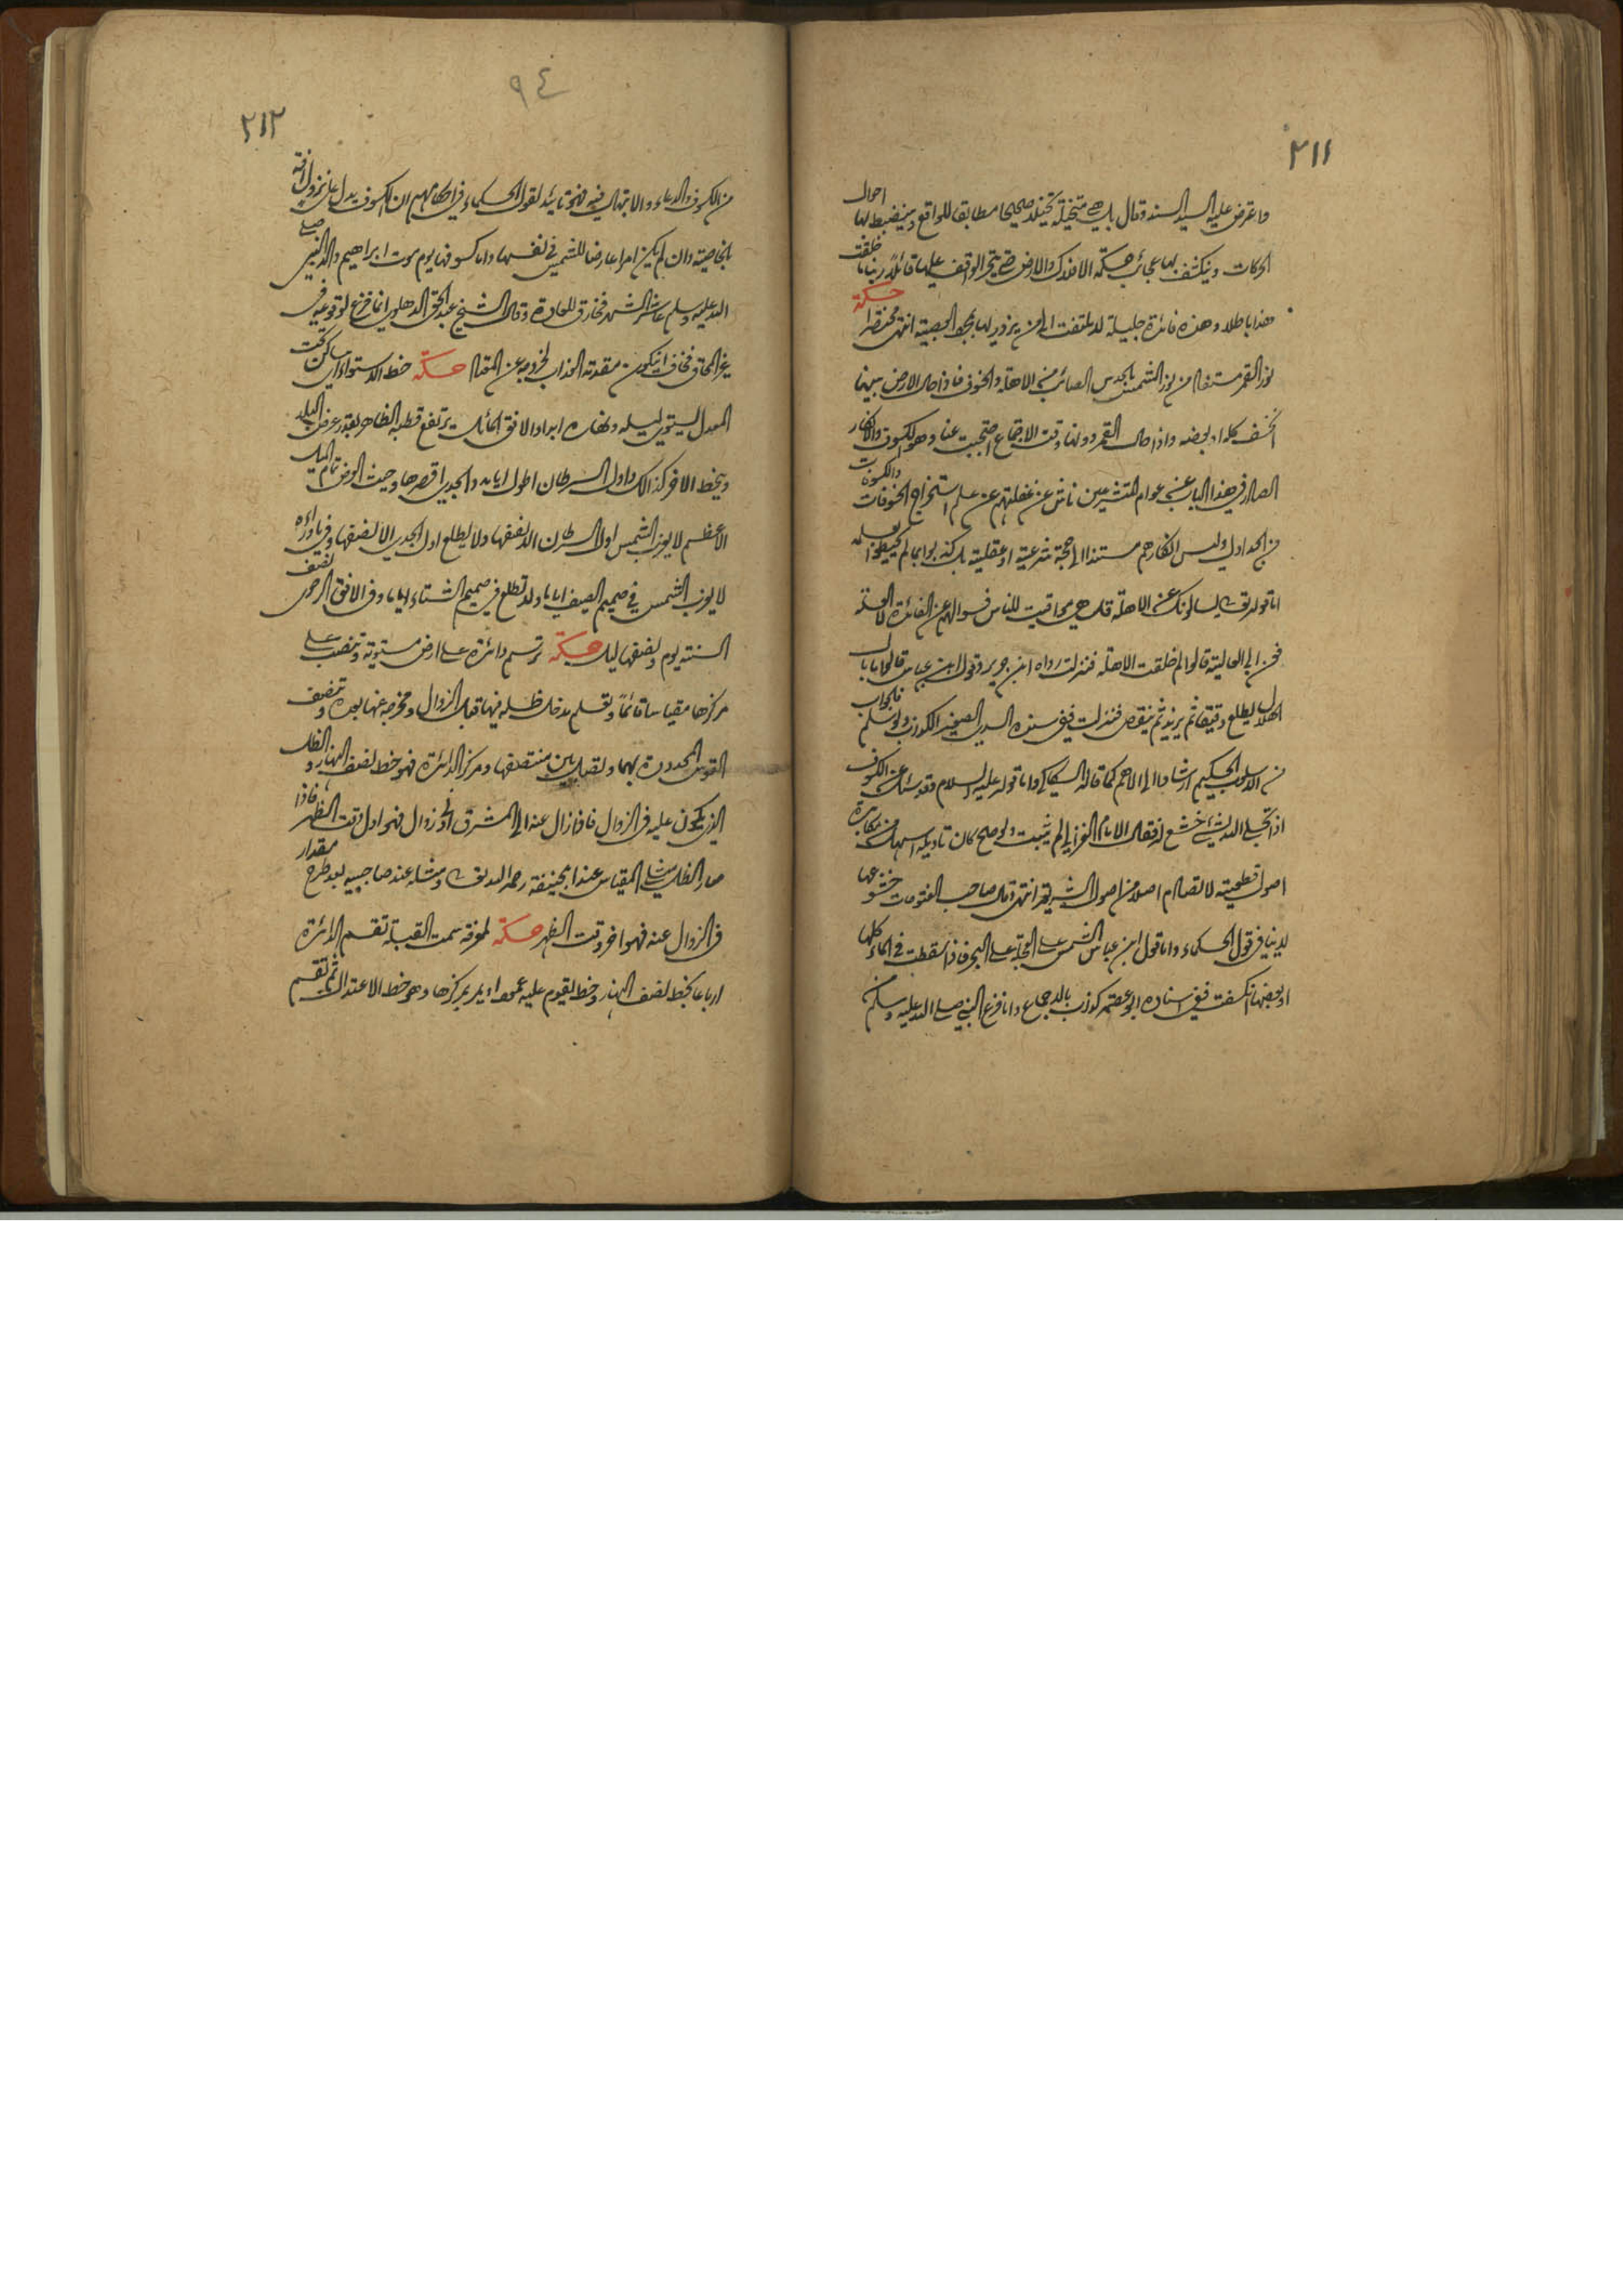 ٢١١
واعترض عليه السيد السند وقال بل هي متخيلة تخيلا صحيحا مطابقا للواقع وينضبط بها احوال
الحركات وينكشف بها عجائب حكمة الافلاك والارض حتى يتحير الواقف عليها قائلا ربنا ما خلقت
هذا باطلا وهذه فائدة جليلة لا يلتفت الى من يزدريها بمحض العصبية انتهى مختصرا حكمة
نور القمر مستفاد من نور الشمس بالحدس الصائب في الاهلة والخسوف فاذا حال الارض بينهما
انخسف كله او بعضه واذا حال القمر دونها وقت الاجتماع احتجبت عنا وهو الكسوف والانكار
الصادر في هذا الباب عن عوام المتشرعين ناش عن غفلتهم عن علم استخراج الخسوفات والكسوفات
من الجداول وليس انكارهم مستندا الى حجة شرعية او عقلية بل كذبوا بما لم يحيطوا بعلمه
اما قوله تعالى يسالونك عن الاهلة قل هي مواقيت للناس فسوالهم عن الفائدة لا العلة
فعن ابي العالية قالوا لم خلقت الاهلة فنزلت رواه ابن جرير وقول ابن عباس قالوا ما بال
الهلال يطلع دقيقا ثم يزيد ثم ينقص فنزلت ففي سنده السدي الصغير الكذوب ولو سلم فالجواب
من الاسلوب الحكيم ارشادا الى الاهم كما قاله السكاكي واما قوله عليه السلام وقد سئل عن الكسوف
اذا تجلى الله لشئ خشع له فقال الامام الغزالي لم يثبت ولو صح كان تاويله اسهل من مكابرة
اصول قطعية لا تصادم اصلا من اصول الشريعة انتهى وقال صاحب الفتوحات خشوعها
لا ينافي قول الحكماء واما قول ابن عباس الشمس على العجلة على البحر فاذا سقطت في الماء كلها
او بعضها انكسفت ففي اسناده ابو عصمة كذوب بالاجماع واما فزع النبي صلى الله عليه وسلم
٩٤
٢١٢
من الكسوف والدعاء والابتهال فيه فهو تائيد لقول الحكماء في احكامهم ان الكسوف يدل على نزول آفة
بالخاصية وان لم يكن امرا عارضا للشمس في نفسها واما كسوفها يوم موت ابراهيم والد النبي صلى
الله عليه وسلم عاشر الشهر فخارق للعادة وقال الشيخ عبد الحق الدهلوي انما فزع لوقوعه في
غير المحاق فخاف ان يكون مقدمة العذاب لخروجه عن المعتاد حكمة خط الاستواء ساكن تحت
المعدل يستوي ليله ونهاره ابدا والافق المائل يرتفع قطبه الظاهر بقدر عرض البلد
وينحط الاخر كذلك واول السرطان اطول ايامه والجدي اقصرها وحيث العرض تمام الميل
الاعظم لا يغرب الشمس اول السرطان الا نصفها ولا يطلع اول الجدي الا نصفها وفي ما وراءه
لا يغرب الشمس في صميم الصيف اياما ولا تطلع في صميم الشتاء اياما وفي الافق الرحوي نصف
السنة يوم ونصفها ليل حكمة ترسم دائرة على ارض مستوية وتنصب على
مركزها مقياسا قائما وتعلم مدخل ظله فيها قبل الزوال ومخرجه عنها بعده وتنصف
القوس المحدودة بهما وتصل بين منتصفها ومركز الدائرة فهو خط نصف النهار والظل
الذي يكون عليه في الزوال فاذا زال عنه الى المشرق اخذ زوال فهو اول وقت الظهر فاذا
صار الظل مثلي المقياس عند ابي حنيفة رحمه الله تعالى ومثله عند صاحبيه بعد طرح مقدار
في الزوال عنه فهو اخر وقت الظهر حكمة لمعرفة سمت القبلة تقسم الدائرة
ارباعا بخط نصف النهار وخط يقوم عليه عمودا يمر بمركزها وهو خط الاعتدال ثم تقسم